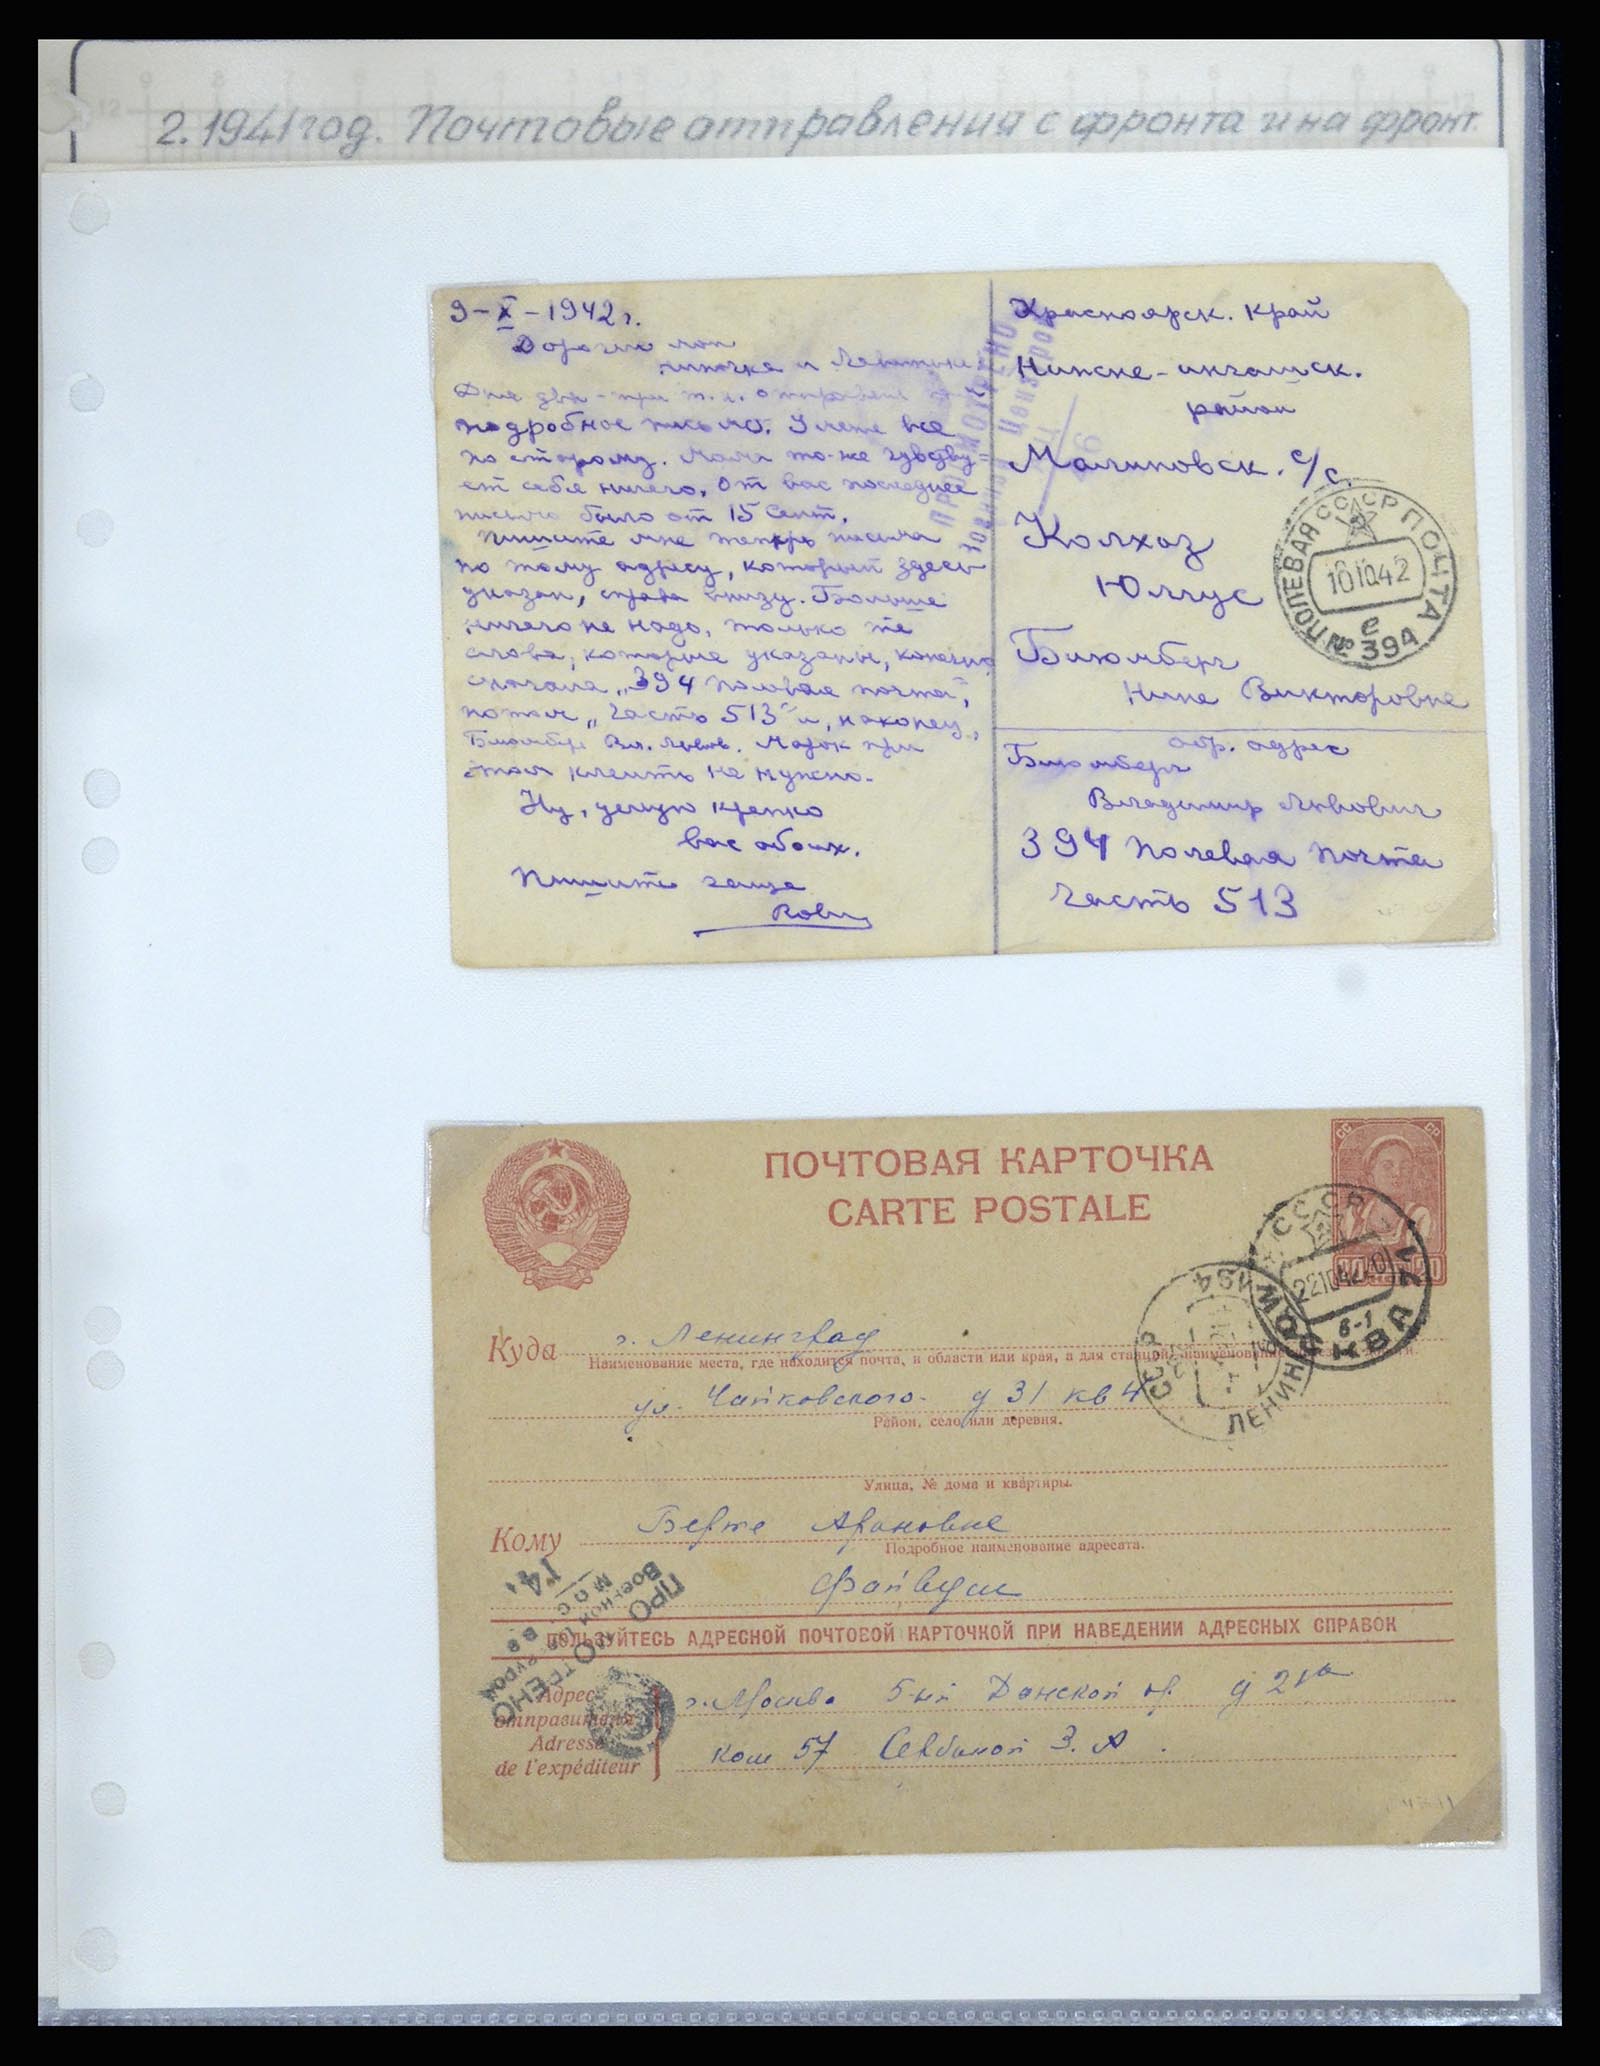 2. 1941 год. Почтовые отправления с фронта и на фронт.
9-X-1942 г.
Дорогие
подробное письмо. У меня все
по старому. Мама то-же чувству-
ет себя ничего. От вас последнее
письмо было от 15 Сент.
Пишите мне теперь письма
по тому адресу, который здесь
указан, справа внизу. Больше
ничего не надо, только те
слова, которые указаны, конечно
сначала „394 полевая почта",
потом „Часть 513" и, наконец,
Блюмберг Вл. Львов. Марок при
этом клеить не нужно.
Ну, целую крепко
вас обоих.
Пишите чаще
ПРОСМОТРЕНО
Военной Цензурой
Красноярск. край
Нижне-ингашск.
район
Малиновск. с/с.
Колхоз
Юлгус
Блюмберг
Нине Викторовне
СССР ПОЛЕВАЯ ПОЧТА
10 10 42
е
№ 394
обр. адрес
Блюмберг
Владимир Львович
394 полевая почта
Часть 513
ПОЧТОВАЯ КАРТОЧКА
CARTE POSTALE
СССР
СССР
МОСКВА
22 10 42
6-1
СССР
ЛЕНИНГРАД
Куда г. Ленинград
Наименование места, где находится почта, и области или края, а для станций, наименование
ул. Чайковского д 31 кв 4
Район, село или деревня.
Улица, № дома и квартиры.
Кому Берте Ароновне
Подробное наименование адресата.
ПРОСМОТРЕНО
Военной Цензурой
ПОЛЬЗУЙТЕСЬ АДРЕСНОЙ ПОЧТОВОЙ КАРТОЧКОЙ ПРИ НАВЕДЕНИИ АДРЕСНЫХ СПРАВОК
Адрес
отправителя
Adresse
de l'expéditeur
г. Москва 5-ый Донской пр. д 21а
ком 57 З. А.